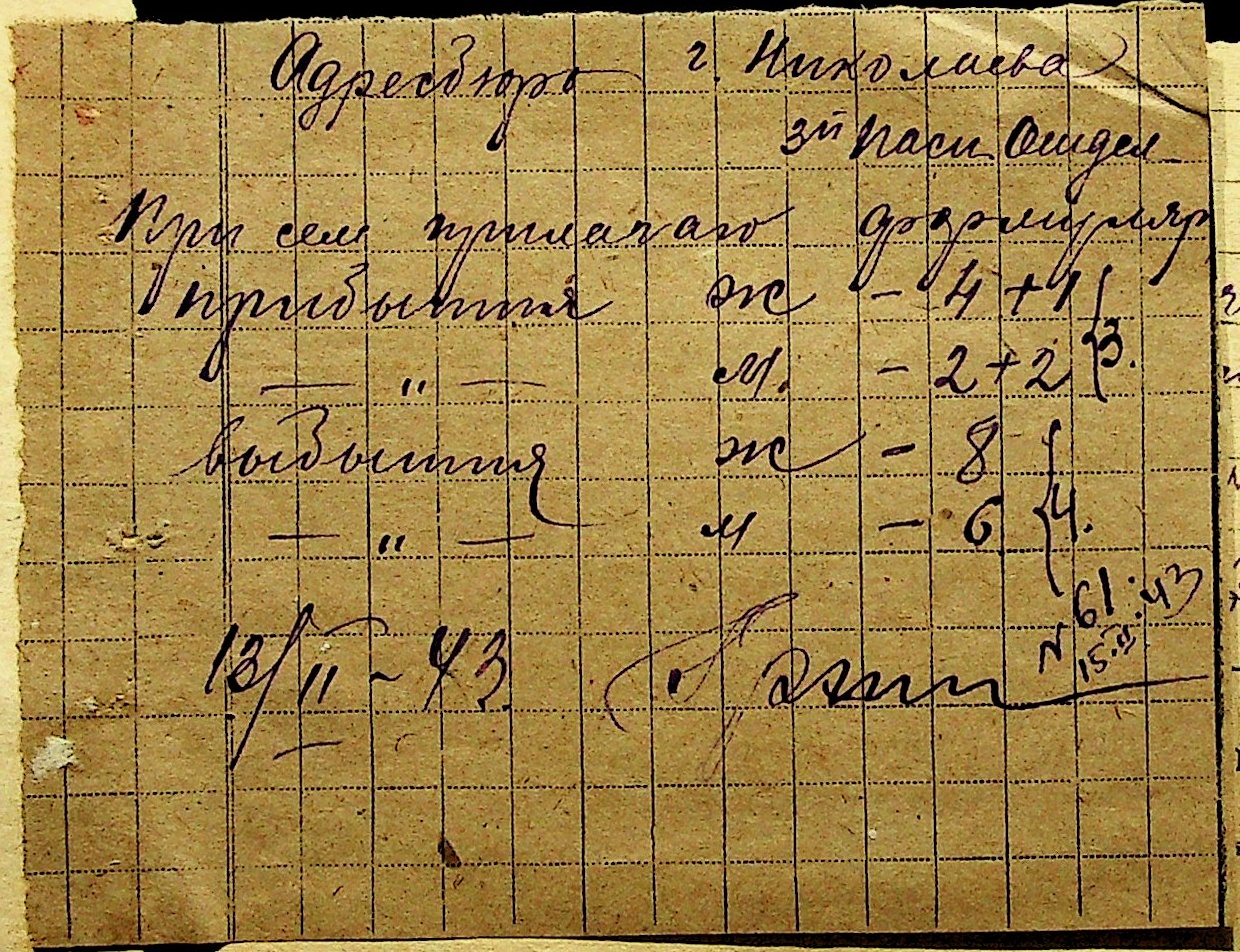 Адресбюро г. Николаева
3й Пасп. Отдел
При сем прилагаю формуляр
прибытия Ж - 4 + 1
— " — М. - 2 + 2 } 3.
выбытия Ж - 8
— " — М - 6 } 4.
N 61
15.II.43
13/II - 43